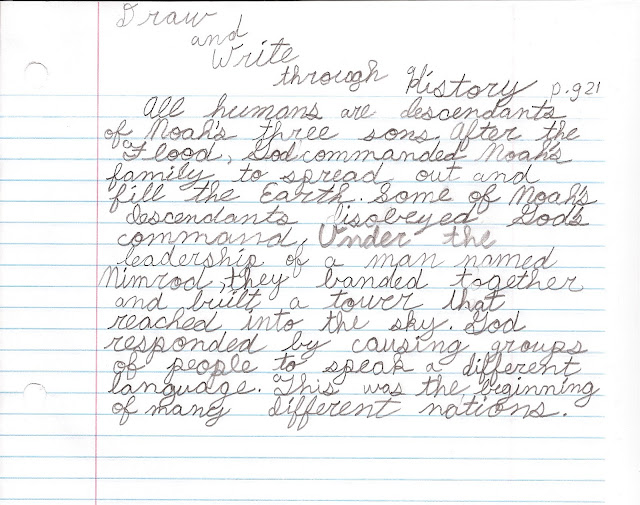 Draw
and
Write
through History p.g21
All humans are descendants
of Noah's three sons. After the
Flood, God commanded Noah's
family to spread out and
fill the Earth. Some of Noah's
descendants disobeyed God's
command. Under the
leadership of a man named
Nimrod, they banded together
and built a tower that
reached into the sky. God
responded by causing groups
of people to speak a different
language. This was the beginning
of many different nations.